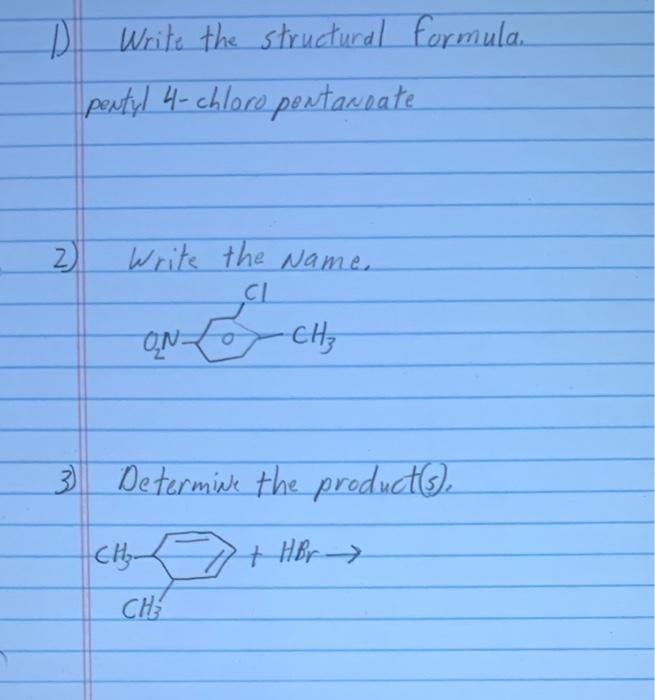 1) Write the structural formula.
pentyl 4-chloro pentanoate
2) Write the Name.
Cl
O₂N CH₃
3) Determine the product(s).
CH₃ + HBr →
CH₃